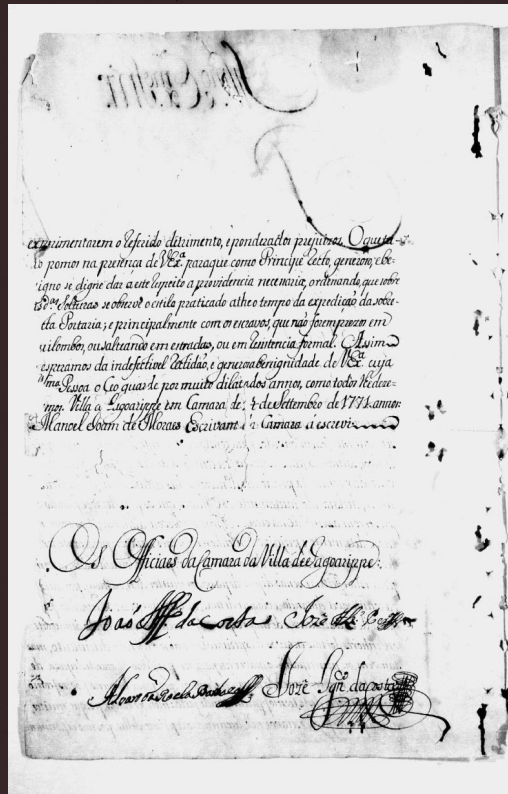 exprimentarem o referido ditrimento, e ponderados prejuizos. O que tu-
do pomos na prezença de VEx.ª para que como Principe recto, generozo, e be-
nigno se digne dar a este respeito a providencia neceraria, ordenando, que sobre
as d.ªs Solteiras se observe o estilo praticado athe o tempo da expedição da sobre-
dita Portaria; e principalmente com os escravos, que não forem prezos em
quilombos, ou salteando em estradas, ou em rezistencia formal. Assim o
esperamos da indefectivel rectidão, e generoza benignidade de VEx.ª cuja
Ill.ma Pessoa o Ceo guarde por muito dilatados annos, como todos havemos
mos. Villa de Jagoarippe em Camara de de Settembro de 1771 annos
Manoel Joam de Moraes Escrivam da Camara a escrevi
Os Officiaes da Camara da Villa de Jagoarippe.
João da Costa Jozè
Jozè Ign.º da Costa